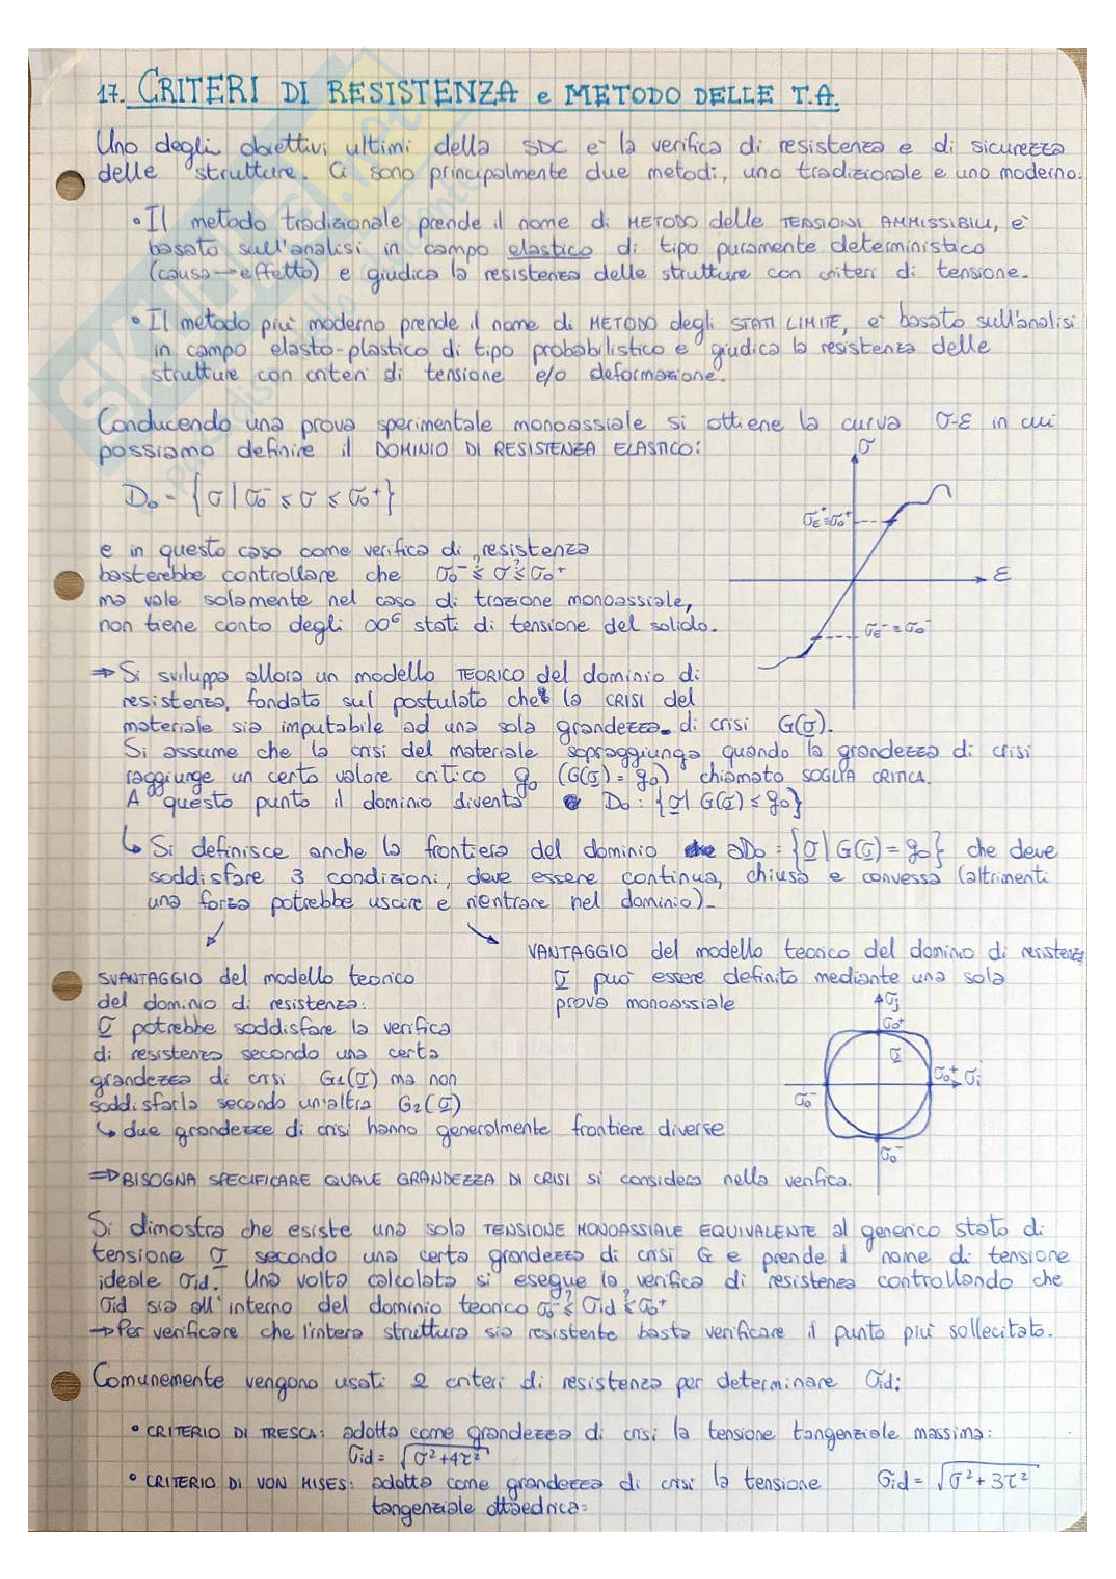 17. CRITERI DI RESISTENZA e METODO DELLE T.A.
Uno degli obiettivi ultimi della SDC e' la verifica di resistenza e di sicurezza
delle strutture. Ci sono principalmente due metodi, uno tradizionale e uno moderno:
• Il metodo tradizionale prende il nome di METODO delle TENSIONI AMMISSIBILI, e'
basato sull'analisi in campo elastico di tipo puramente deterministico
(causa → effetto) e giudica la resistenza delle strutture con criteri di tensione.
• Il metodo piu' moderno prende il nome di METODO degli STATI LIMITE, e' basato sull'analisi
in campo elasto-plastico di tipo probabilistico e giudica la resistenza delle
strutture con criteri di tensione e/o deformazione.
Conducendo una prova sperimentale monoassiale si ottiene la curva σ-ε in cui
possiamo definire il DOMINIO DI RESISTENZA ELASTICO:
σ
D₀ = {σ | σ₀⁻ ≤ σ ≤ σ₀⁺}
σE⁺=σ₀⁺
e in questo caso come verifica di resistenza
basterebbe controllare che σ₀⁻ ≤? σ ≤? σ₀⁺
ε
ma vale solamente nel caso di trazione monoassiale,
non tiene conto degli ∞⁶ stati di tensione del solido.
σE⁻=σ₀⁻
⇒ Si sviluppa allora un modello TEORICO del dominio di
resistenza, fondato sul postulato che la CRISI del
materiale sia imputabile ad una sola grandezza di crisi G(σ).
Si assume che la crisi del materiale sopraggiunga quando la grandezza di crisi
raggiunge un certo valore critico g₀ (G(σ) = g₀) chiamato SOGLIA CRITICA.
A questo punto il dominio diventa D₀ : {σ | G(σ) ≤ g₀}
↳ Si definisce anche la frontiera del dominio ∂D₀ : {σ | G(σ) = g₀} che deve
soddisfare 3 condizioni, deve essere continua, chiusa e convessa (altrimenti
una forza potrebbe uscire e rientrare nel dominio).
VANTAGGIO del modello teorico del dominio di resistenza
σ puo' essere definito mediante una sola
prova monoassiale
SVANTAGGIO del modello teorico
del dominio di resistenza:
σ potrebbe soddisfare la verifica
di resistenza secondo una certa
grandezza di crisi G₁(σ) ma non
soddisfarla secondo un'altra G₂(σ)
↳ due grandezze di crisi hanno generalmente frontiere diverse
σj
σ₀⁺
σ
σ₀⁺ σi
σ₀⁻
σ₀⁻
⇒ BISOGNA SPECIFICARE QUALE GRANDEZZA DI CRISI si considera nella verifica.
Si dimostra che esiste una sola TENSIONE MONOASSIALE EQUIVALENTE al generico stato di
tensione σ secondo una certa grandezza di crisi G e prende il nome di tensione
ideale σid. Una volta calcolata si esegue la verifica di resistenza controllando che
σid sia all'interno del dominio teorico σ₀⁻ ≤? σid ≤? σ₀⁺
→ Per verificare che l'intera struttura sia resistente basta verificare il punto piu' sollecitato.
Comunemente vengono usati 2 criteri di resistenza per determinare σid:
• CRITERIO DI TRESCA: adotta come grandezza di crisi la tensione tangenziale massima:
σid = √(σ²+4τ²)
• CRITERIO DI VON MISES: adotta come grandezza di crisi la tensione σid = √(σ²+3τ²)
tangenziale ottaedrica: